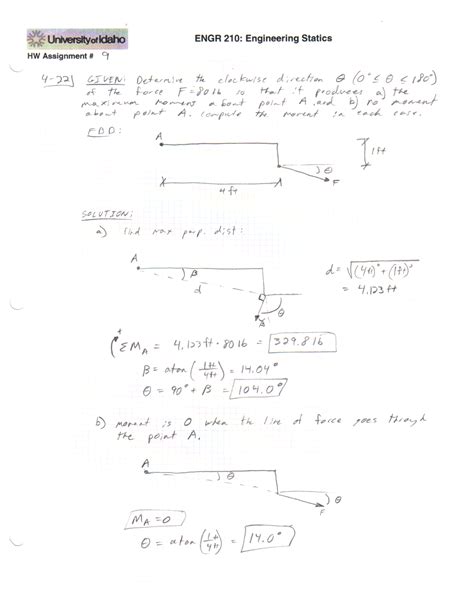 University of Idaho
ENGR 210: Engineering Statics
HW Assignment # 9
4-22] GIVEN: Determine the clockwise direction θ (0° ≤ θ ≤ 180°)
of the force F=80 lb so that it produces a) the
maximum moment about point A and b) no moment
about point A. compute the moment in each case.
FBD:
A
1ft
θ
F
4 ft
SOLUTION:
a) find max perp. dist:
A
β
d
θ
d = √(4ft)² + (1ft)²
= 4.123 ft
+
ΣM_A = 4.123 ft · 80 lb = 329.8 lb
β = atan (1ft/4ft) = 14.04°
θ = 90° + β = 104.0°
b) moment is 0 when the line of force goes through
the point A.
A
θ
θ
F
M_A = 0
θ = atan (1ft/4ft) = 14.0°